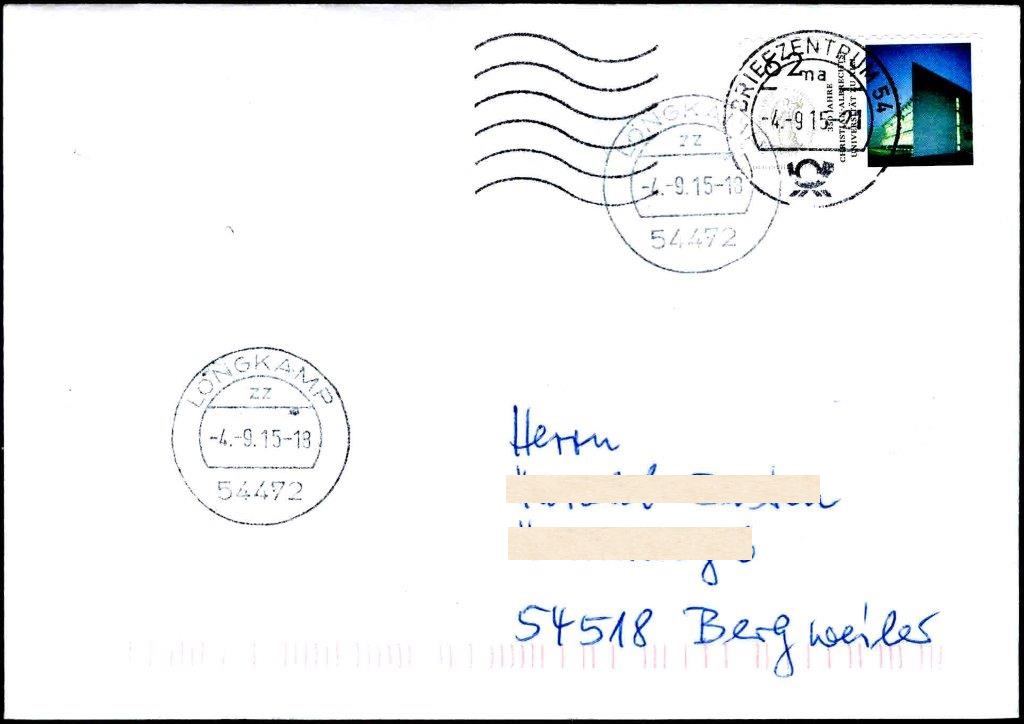 BRIEFZENTRUM 54
62
ma
-4.-9.15-21
350 JAHRE
CHRISTIAN-ALBRECHTS
UNIVERSITÄT ZU
LONGKAMP
zz
-4.-9.15-18
54472
LONGKAMP
zz
-4.-9.15-18
54472
Herrn
54518 Bergweiler